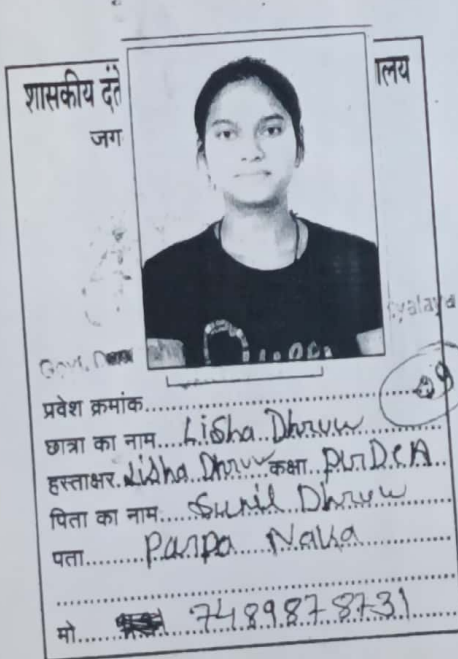 शासकीय दंते
लय
जग
Govt.
yalaya
प्रवेश क्रमांक
09
छात्रा का नाम Lisha Dhruw
हस्ताक्षर Lisha Dhruw कक्षा PGDCA
पिता का नाम Sunil Dhruw
पता Parpa Naka
मो 7489878731